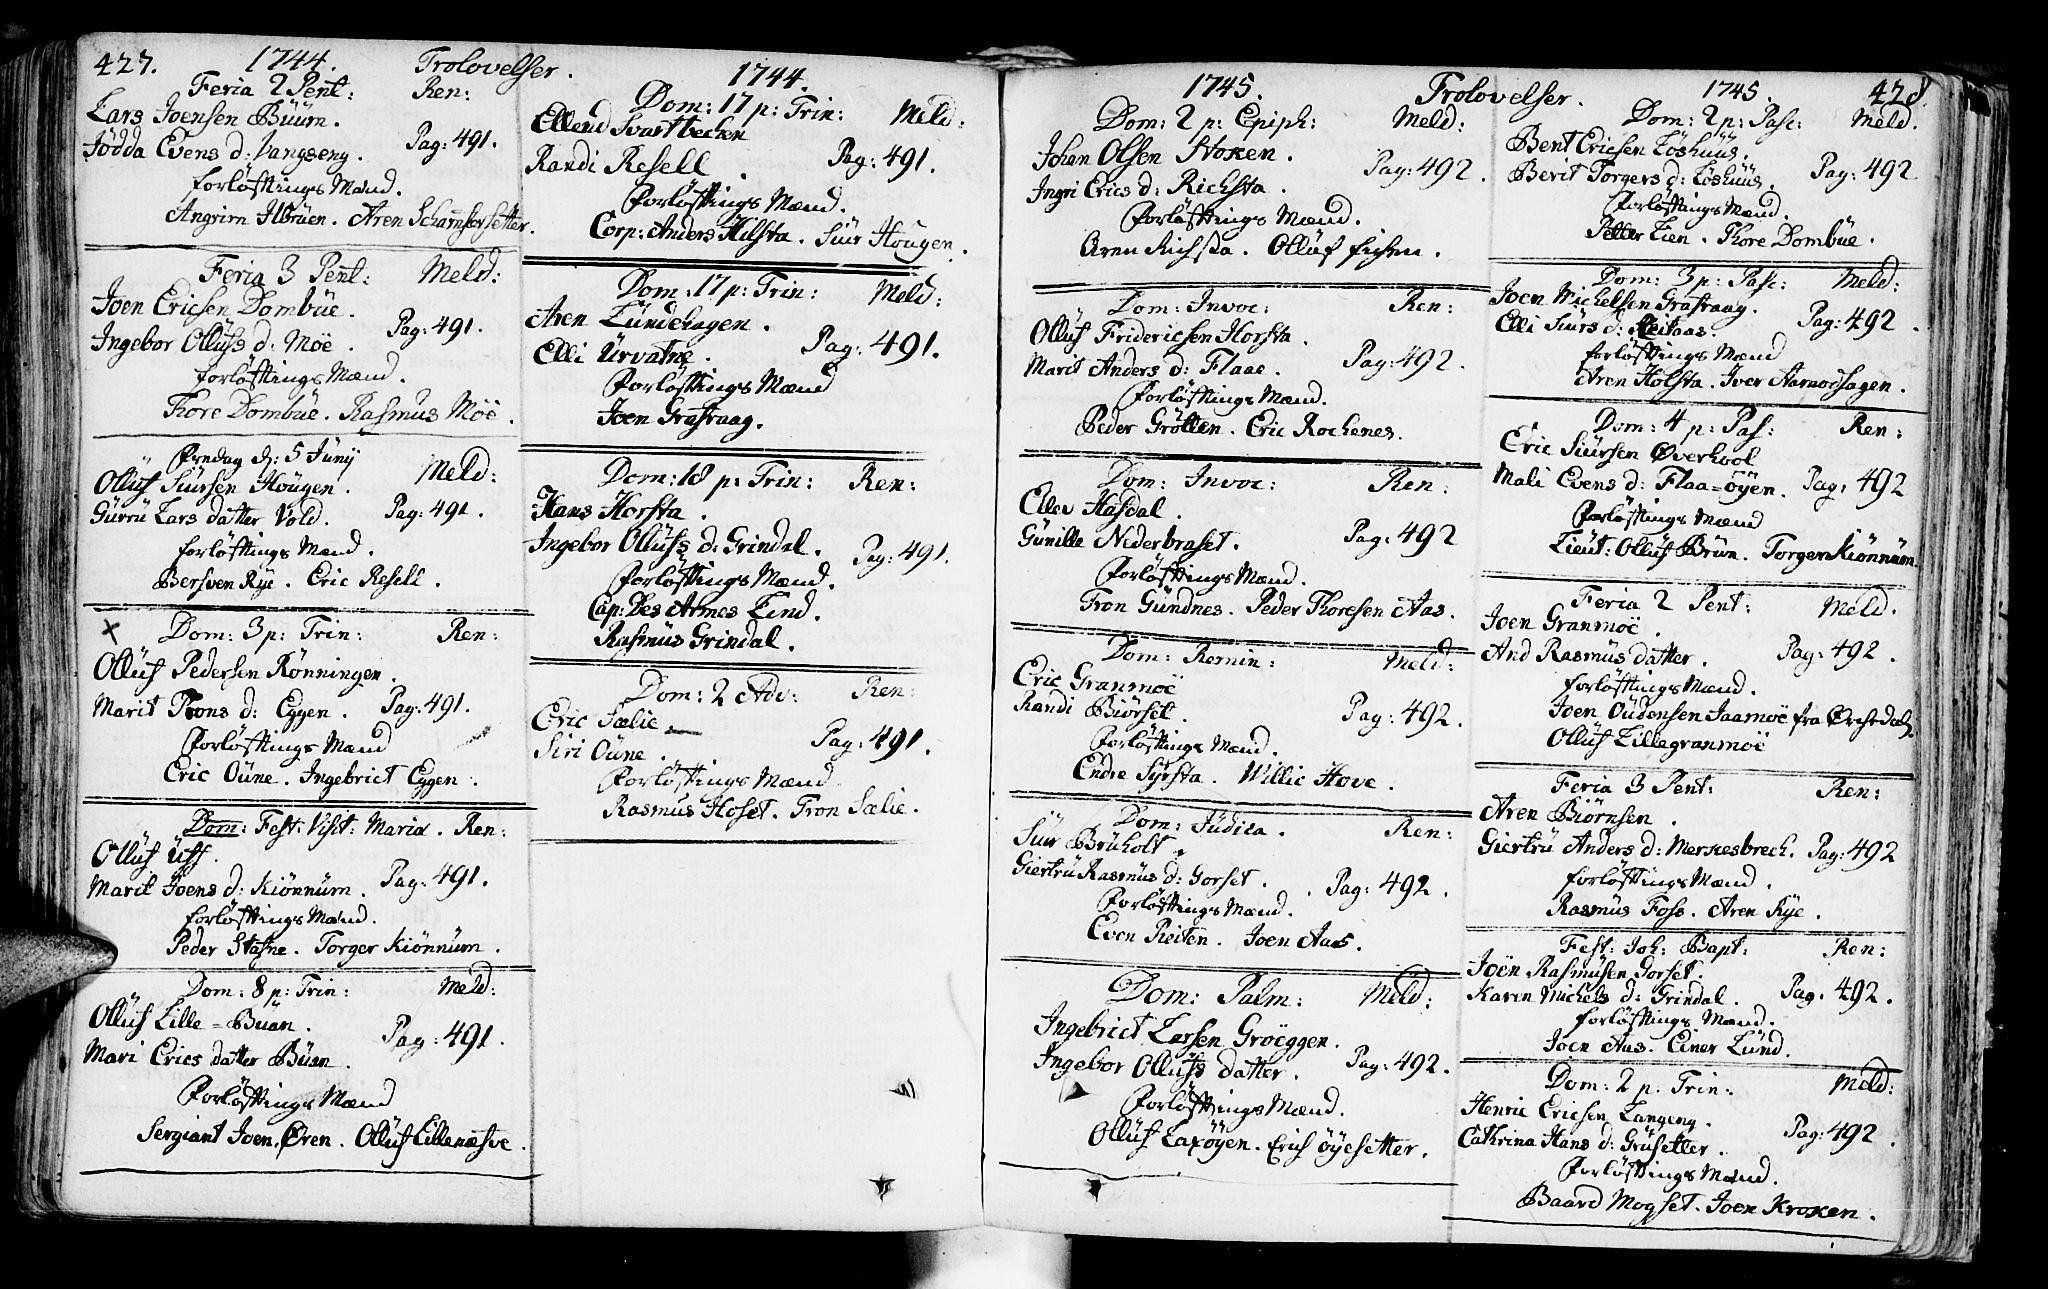 427. 1744. Trolovelser.
Feria 2 Pent: Ren:
Lars Joensen Büürn.
Jödda Evens d: Vangseng. Pag: 491.
forlöftings Mænd.
Angrim Ilbrüen. Aren Scharnsersetter.
Feria 3 Pent: Meld:
Joen Ericsen Dombüe.
Ingebor Ollüfs d: Möe. Pag: 491.
forlöftings Mænd.
Thore Dombüe. Rasmus Möe.
Fredag d: 5 Junij Meld:
Ollüf Siursen Hougen.
Gürrü Lars datter Vold. Pag: 491.
forlöftings Mænd.
Bersven Rye. Eric Resell.
Dom: 3 p: Trin: Ren:
Ollüf Pedersen Rönningen.
Marit Trons d: Eggen. Pag: 491.
Forlöftings Mænd
Eric Oüne. Ingebrict Eggen.
Dom: Fest: Visit: Mariæ. Ren:
Ollüf Üff.
Marit Joens d: Kiönnüm. Pag: 491.
forlöftings Mænd.
Peder Stafne. Torger Kiönnüm.
Dom: 8 p: Trin: Meld:
Ollüf Lille=Büan.
Mari Erics datter Büan. Pag: 491.
Forlöftings Mænd
Sergiant Joen Ören. Ollüf Lillenæsve.
1744.
Dom: 17 p: Trin: Meld:
Ellend Svartbecken
Randi Resell. Pag: 491.
Forlöftings Mænd.
Corp: Anders Hilsta. Siür Hougen.
Dom: 17 p: Trin: Meld:
Aren Lündehagen.
Elli Ürvatne. Pag: 491.
Forlöftings Mænd
Joen Grafraag.
Dom: 18 p: Trin: Ren:
Hans Horsta.
Ingebor Ollüfs d: Grindal. Pag: 491.
Forlöftings Mænd.
Cap: Des Armes Lind.
Rasmus Grindal.
Dom: 2 Adv: Ren:
Eric Sælie
Siri Oüne. Pag: 491.
Forlöftings Mænd
Rasmus Hoset. Tron Sælie.
1745. Trolovelser. 1745. 428.
Dom: 2 p: Epiph: Meld:
Johan Olsen Stoxen.
Ingri Erics d: Richsta. Pag: 492.
Forlöftings Mænd.
Aren Richsta. Ollüf
Dom: Invoc: Ren:
Ollüf Fridericsen Horsta.
Marit Anders d: Flaae. Pag: 492.
Forlöftings Mænd.
Peder Grötten. Eric Rochenes.
Dom: Invoc: Ren:
Ellev Hafdal.
Günille Nederbraset. Pag: 492
Forlöftings Mænd.
Tron Gündnes. Peder Thoresen Aas.
Dom: Remin: Meld:
Eric Granmoë
Randi Biörset. Pag: 492.
Forlöftings Mænd.
Endre Syrsta. Willic Hove.
Dom: Jüdica. Ren:
Siur Brüholt.
Giertrü Rasmus d: Gorset. Pag: 492.
Forlöftings Mænd.
Even Reiten. Joen Aas.
Dom: Palm: Meld:
Ingebrict Larsen Gröeggen.
Ingebor Ollüfs datter. Pag: 492.
Forlöftings Mænd.
Ollüf Laxöyen. Erich öyesetter.
Dom: 2 p: Pasc: Meld.
Bent Ericsen Löshüüs.
Berit Torgers d: Löshüüs. Pag: 492
Forlöftings Mænd.
Petter Lien. Thore Dombüe.
Dom: 3 p: Pasc: Meld:
Joen Michelsen Grafraag.
Elli Siürs d: Reitaas. Pag: 492.
forlöftings Mænd
Aren Holsta. Iver Aarnoeshagen.
Dom: 4 p: Pas: Ren:
Eric Siürsen Øverhool
Mali Evens d: Flaa=öyen. Pag: 492
Forlöftings Mænd
Lieut: Ollüf Brün. Torger Kiönnüm
Feria 2 Pent: Meld.
Joen Granmoë.
And Rasmüs datter. Pag: 492.
forlöftings Mænd.
Joen Oüdensen Jaamoë fra Örchedal.
Ollüf Lillegranmoë
Feria 3 Pent: Ren:
Aren Biörnsen.
Giertrü Anders d: Merkesbrech. Pag: 492
forlöftings Mænd.
Rasmüs Foss. Aren Rye.
Fest: Joh: Bapt: Ren:
Joën Rasmüsen Gorset.
Karen Michels d: Grindal. Pag: 492.
forlöftings Mænd.
Joen Aas. Einer Lünd.
Dom: 2 p: Trin: Meld:
Henric Ericsen Langeng.
Cathrina Hans d: Grüsetter. Pag: 492.
Forlöftings Mænd.
Baard Mogset. Joen Kroken.